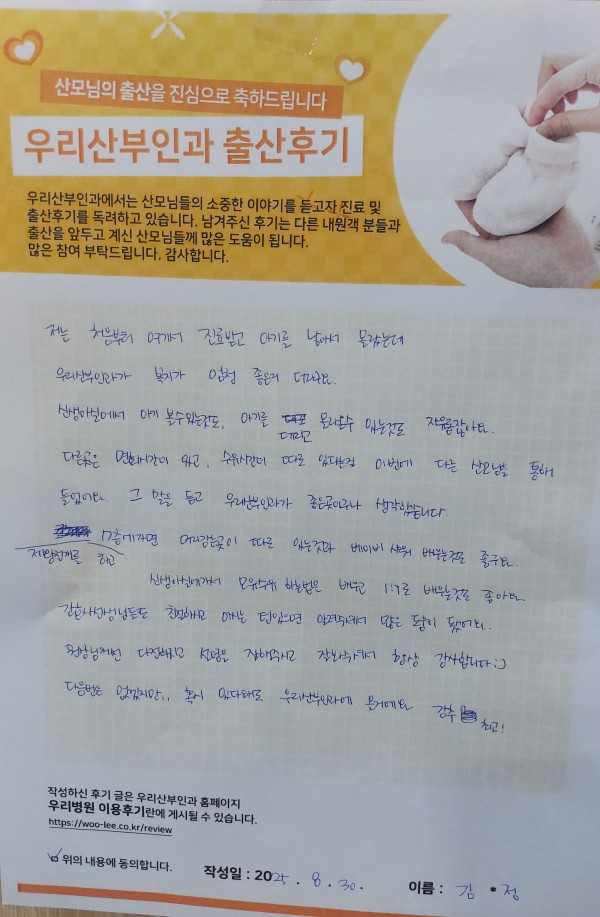 산모님의 출산을 진심으로 축하드립니다
우리산부인과 출산후기
우리산부인과에서는 산모님들의 소중한 이야기를 듣고자 진료 및
출산후기를 독려하고 있습니다. 남겨주신 후기는 다른 내원객 분들과
출산을 앞두고 계신 산모님들께 많은 도움이 됩니다.
많은 참여 부탁드립니다. 감사합니다.
저는 처음부터 여기서 진료받고 아기를 낳아서 몰랐는데
우리산부인과가 복지가 엄청 좋은거 더라구요.
신생아실에서 아기 볼수있는것도, 아기를 데리고 올라올수 있는것도 자유롭잖아요.
다른곳은 면회시간이 있고, 수유시간이 따로 있다는걸 이번에 다른 산모님들 통해
들었어요. 그 말을 듣고 우리산부인과가 좋은곳이구나 생각했습니다
제왕전까를 하고
7층에가면 머리감는곳이 따로 있는것과 베이비 샤워 배우는것도 좋구요.
신생아실에가서 모유수유 하는법은 배우고 1:1로 배우는것도 좋아요.
간호사선생님들도 친절하시고 아시는 팁있으면 알려주셔서 많은 도움이 됐어요.
원장님께선 다정하시고 설명을 잘해주시고 잘봐주셔서 항상 감사합니다:)
다음번은 없겠지만.. 혹시 있다해도 우리산부인과에 올거에요 강추 최고!
작성하신 후기 글은 우리산부인과 홈페이지
우리병원 이용후기란에 게시될 수 있습니다.
https://woo-lee.co.kr/review
위의 내용에 동의합니다.
작성일 : 2025. 8. 30.
이름 : 김 * 정